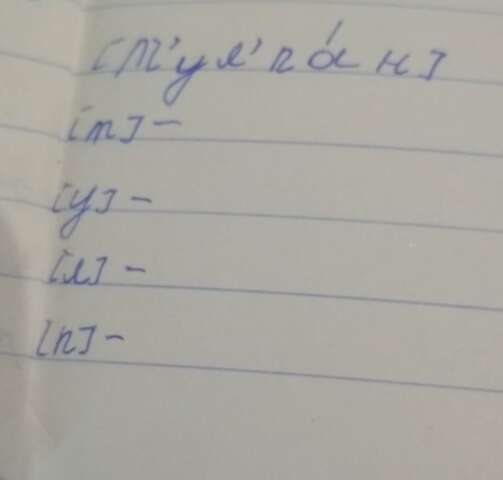 [т'ул'па́н]
[т] -
[у] -
[л] -
[п] -